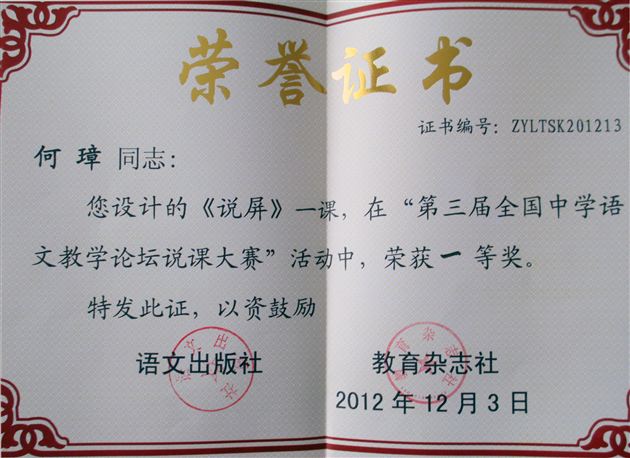 荣誉证书
证书编号：ZYLTSK201213
何 璋 同志：
您设计的《说屏》一课，在“第三届全国中学语
文教学论坛说课大赛”活动中，荣获一等奖。
特发此证，以资鼓励
语文出版社 教育杂志社
2012年12月3日